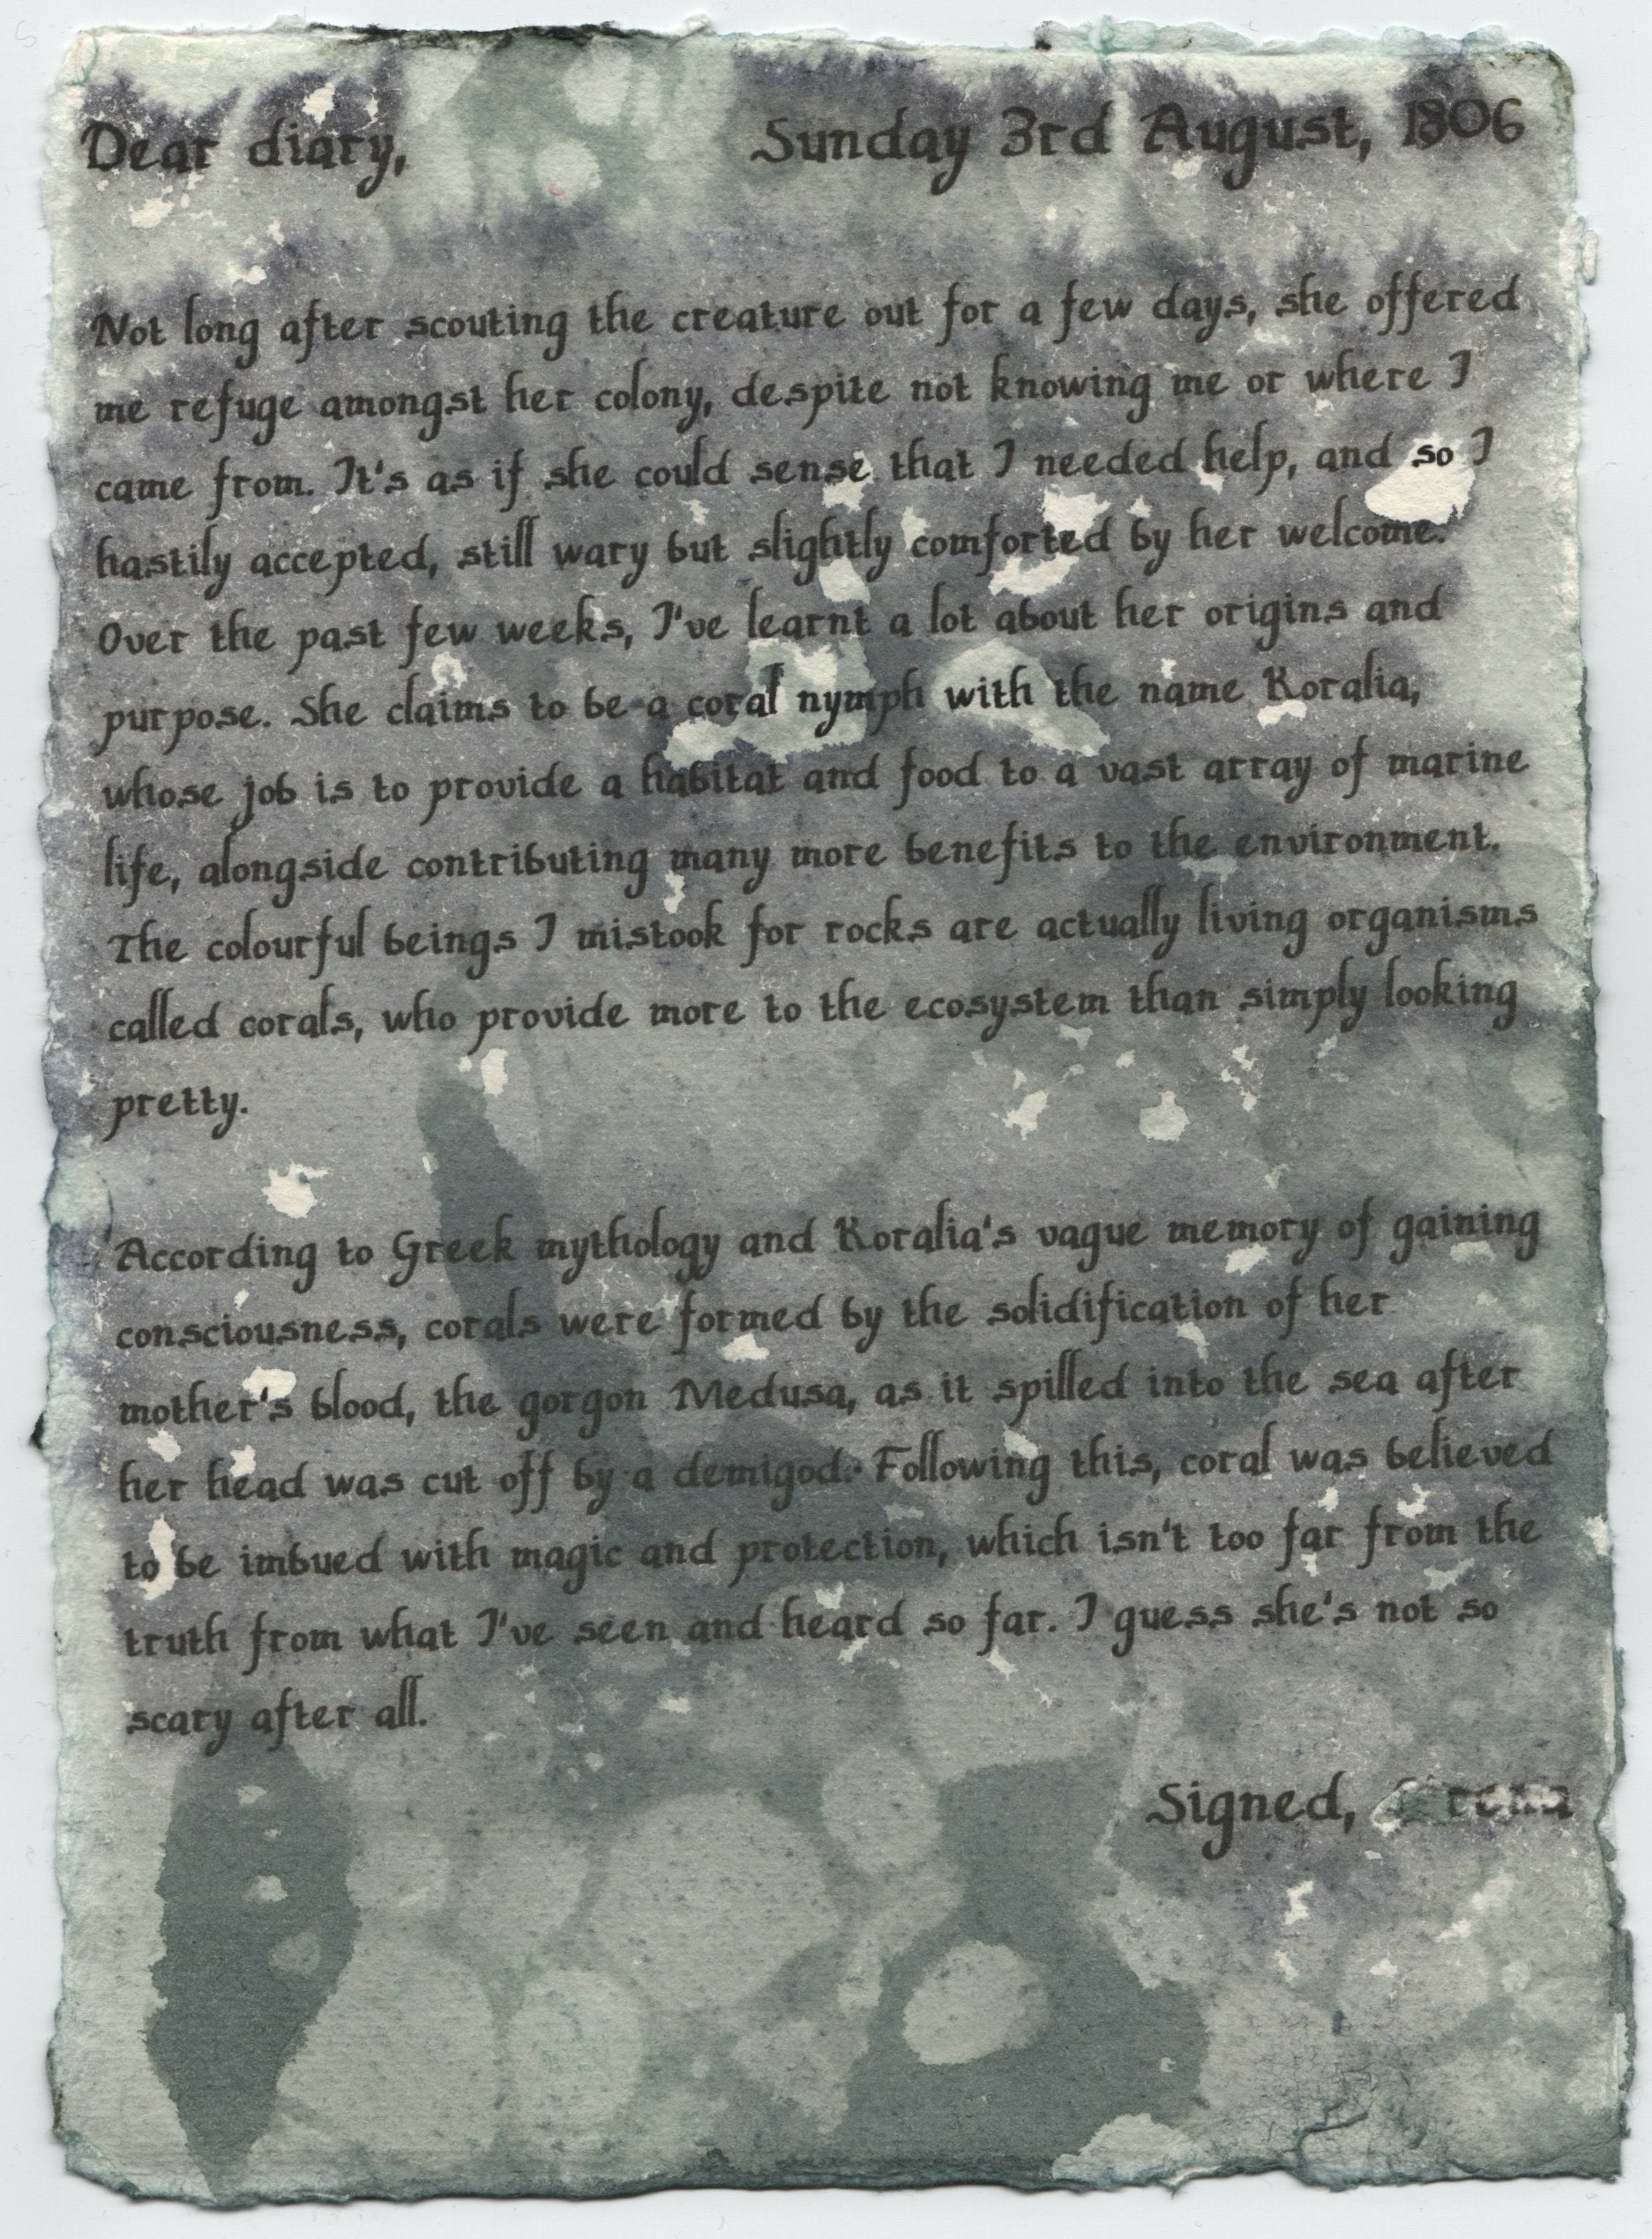 Dear diary, Sunday 3rd August, 1806
Not long after scouting the creature out for a few days, she offered
me refuge amongst her colony, despite not knowing me or where I
came from. It's as if she could sense that I needed help, and so I
hastily accepted, still wary but slightly comforted by her welcome.
Over the past few weeks, I've learnt a lot about her origins and
purpose. She claims to be a coral nymph with the name Koralia,
whose job is to provide a habitat and food to a vast array of marine
life, alongside contributing many more benefits to the environment.
The colourful beings I mistook for rocks are actually living organisms
called corals, who provide more to the ecosystem than simply looking
pretty.
According to Greek mythology and Koralia's vague memory of gaining
consciousness, corals were formed by the solidification of her
mother's blood, the gorgon Medusa, as it spilled into the sea after
her head was cut off by a demigod. Following this, coral was believed
to be imbued with magic and protection, which isn't too far from the
truth from what I've seen and heard so far. I guess she's not so
scary after all.
Signed,